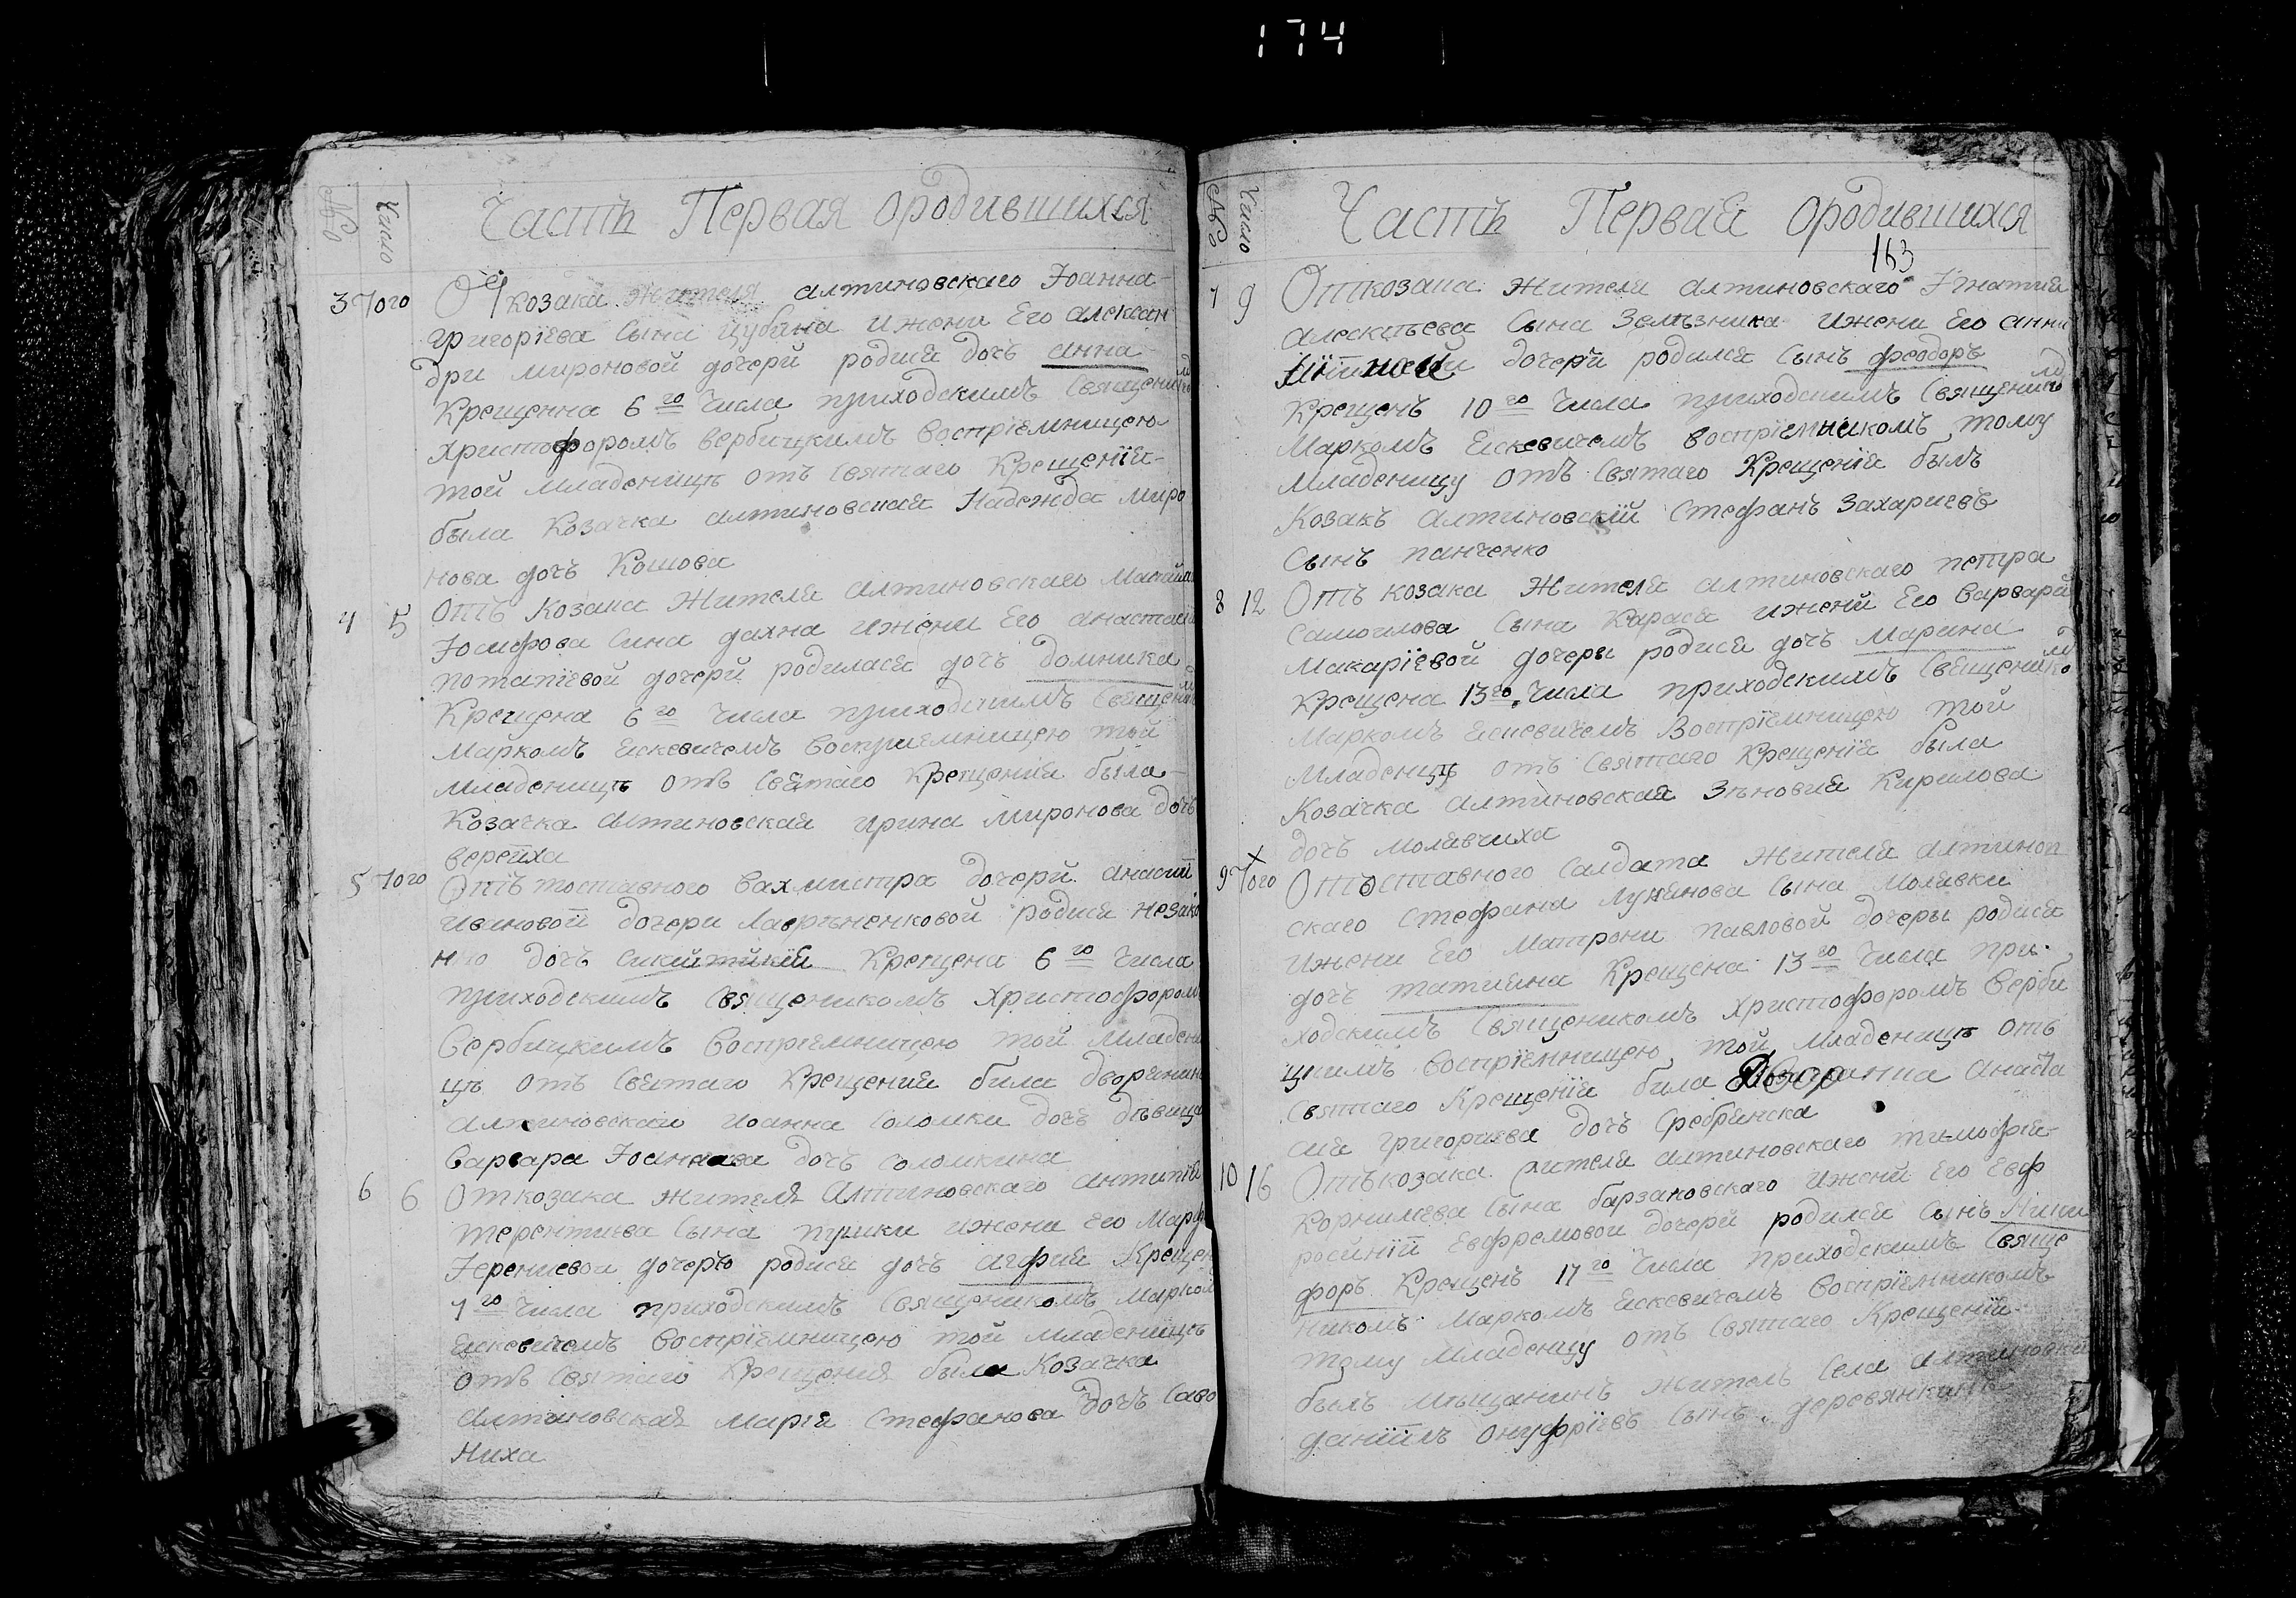 174
№ Число Часть Первая ородившихся
3 Того От козака жителя алтиновскаго Іоанна
григоріева Сына цубана ижени Его алексан
дри мироновой дочери родися дочъ анна
Крещенна 6 го Числа приходскимъ Священико мъ
Христофоромъ вербицкимъ воспріемницею
той младеницъ отъ Святаго Крещенія
была Козачка алтиновская Надежда миро
нова дочъ Кошова
4 5 Отъ Козака Жителя алтиновскаго
Іосифова Сина дахна ижени Его анастасіи
потапіевой дочерй родилася дочъ домника
Крещена 6 го Числа приходскимъ
Маркомъ Ескевичемъ воспріемницею той
младеницъ отъ Святаго Крещенія была
Козачка алтиновская ирина миронова дочъ
веретиха
5 Того Отъ тоставного вахмистра дочери анастас
ивановой дочери Лавръненковой родися незако
но дочъ Крещена 6 го Числа
приходскимъ Священикомъ Христофором
Вербицкимъ воспріемницею той младени
цъ отъ Святаго Крещения била дворянин
алтиновскаи иоанна Соломки дочъ дѣвица
варвара Іоаннова дочъ соломкина
6 6 От козака жителя Алтиновскаго антипія
терентиева Сына пушки ижени его Марф
Іеремиевои дочерю родися дочъ агфия Крещен
7 го Числа приходскимъ Священикомъ Марком
Ескевичемъ воспріемницею той младеницъ
отъ Святаго Крещения была Козачка
Алтиновская марія Стефанова дочъ Саво
ниха
№ Число Часть Первая ородившихся
163
7 9 Откозака Жителя алтиновскаго Игнатия
алексіѣева Сына Зелѣзника ижени Его анни
дочерй родился Сынъ феодоръ
Крещенъ 10 го Числа приходскимъ Священико мъ
Маркомъ Ескевичемъ воспріемникомъ тому
Младеницу отъ Святаго Крещенія былъ
Козакъ Алтиновскій Стефанъ Захариевъ
Сынъ панченко
8 12 Отъ козака Жителя алтиновскаго петра
Самоилова Сына Карася ижени Его варвари
макаріевой дочеры родися дочъ Марина
Крещена 13 го Числа приходскимъ Священико мъ
Маркомъ Ескевичемъ Воспріемницею той
Младеницъ отъ Святаго Крещенія была
Козачка алтиновская Зѣновия Кирилова
дочъ молявчиха
9 Того Отъставного Салдата Жителя алтинов
скаго Стефана Лукянова Сына Молявки
Ижени Его Матрони павловой дочеры родися
дочъ татияна Крещена 13 го Числа при
ходскимъ Священикомъ Христофоромъ верби
цкимъ воспріемницею той младеницъ отъ
Святаго Крещенія била Анаста
сия григориева дочъ Сребрянска
10 16 Отъкозака жителя алтиновскаго тимофія
Корнилева Сына барзаковскаго Ижени Его Евф
росиніи Евфремовои дочерй родился Сынъ Ники
форъ Крещенъ 17 го Числа приходскимъ Свяще
никомъ Маркомъ Ескевичемъ воспріемникомъ
тому младеницу отъ Святаго Крещенія
былъ мѣщанинъ житель Села Алтиновки
даніилъ онуфріевъ Сынъ деревянкинъ